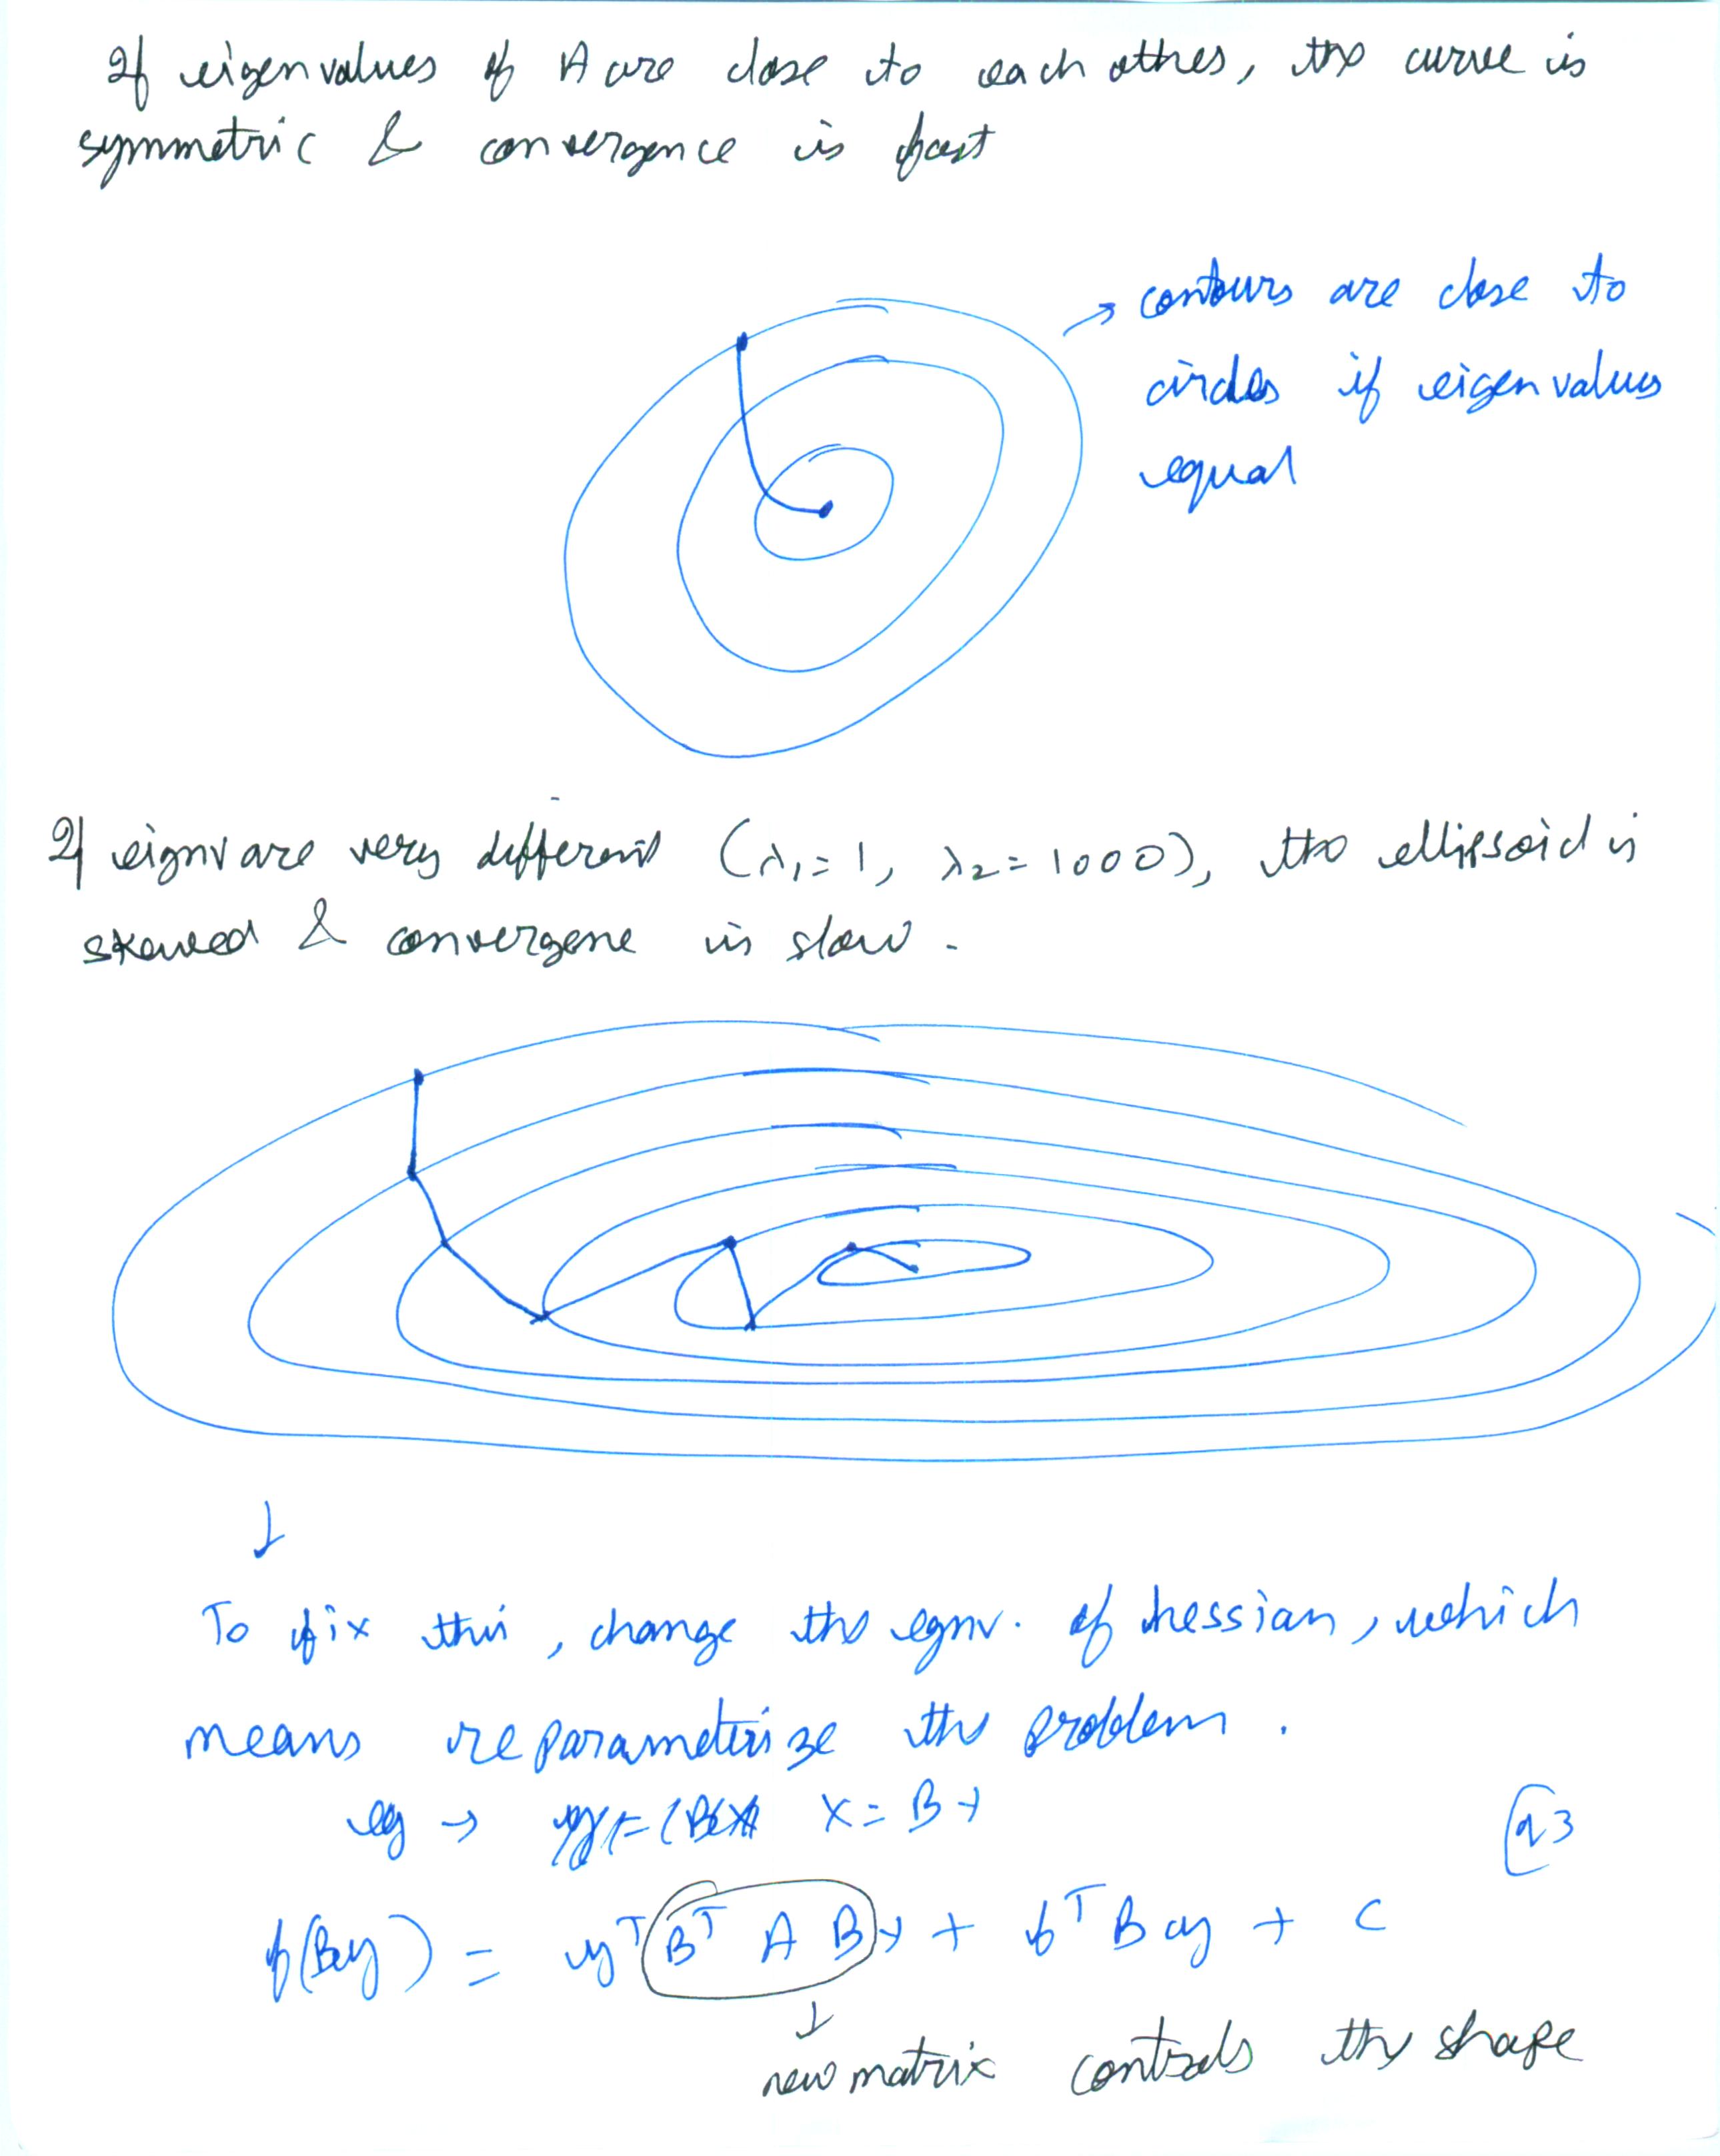 If eigenvalues of A are close to each other, the curve is
symmetric & convergence is fast
→ contours are close to
circles if eigenvalues
equal
If eignv are very different (λ₁=1, λ₂=1000), the ellipsoid is
skewed & convergene is slow.
↓
To fix this, change the egnv. of hessian, which
means reparameterise the problem.
eg → x = By
f(By) = yᵀ Bᵀ A B y + bᵀ B y + c
↓
new matrix controls the shape